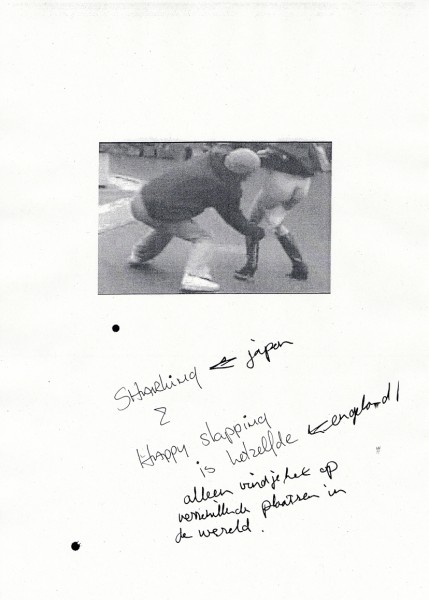 SHARKING ← japan
&
Happy slapping
is hetzelfde ← engeland!
alleen vind je het op
verschillende plaatsen in
de wereld.